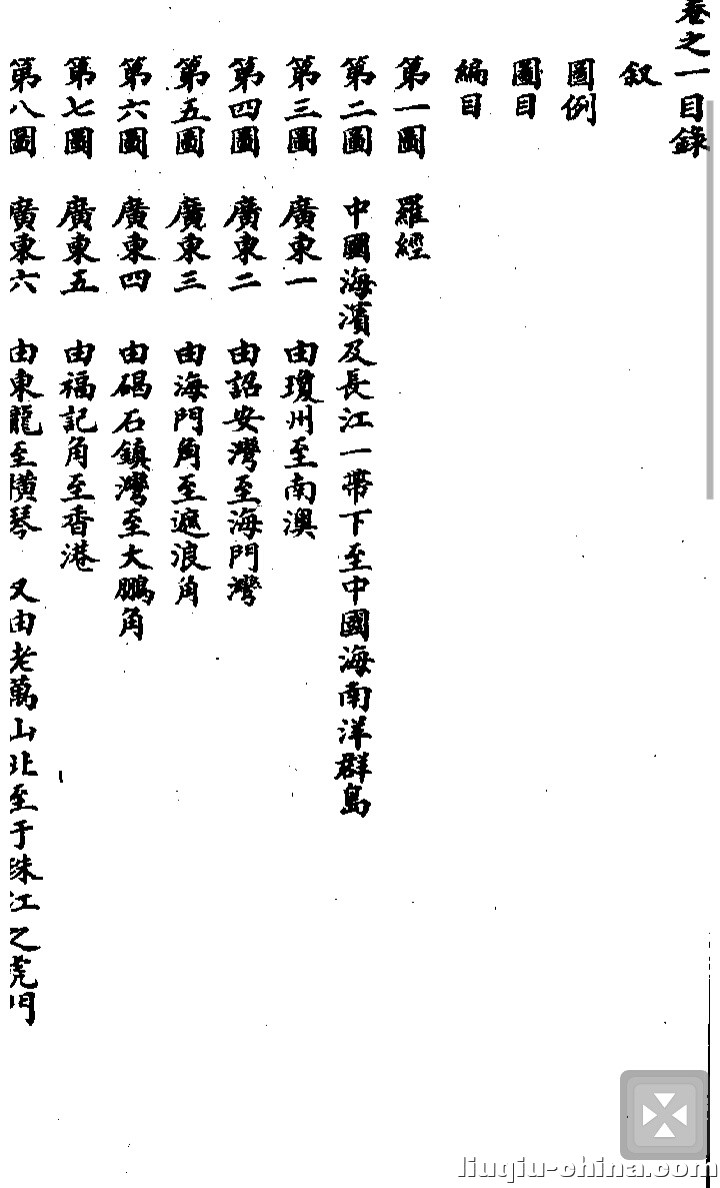 卷之一目錄
叙
圖例
圖目
編目
第一圖 羅經
第二圖 中國海濱及長江一帶下至中國海南洋群島
第三圖 廣東一 由瓊州至南澳
第四圖 廣東二 由詔安灣至海門灣
第五圖 廣東三 由海門角至遮浪角
第六圖 廣東四 由碣石鎮灣至大鵬角
第七圖 廣東五 由福記角至香港
第八圖 廣東六 由東龍至橫琴 又由老萬山北至于珠江之虎門
liuqiu-china.com